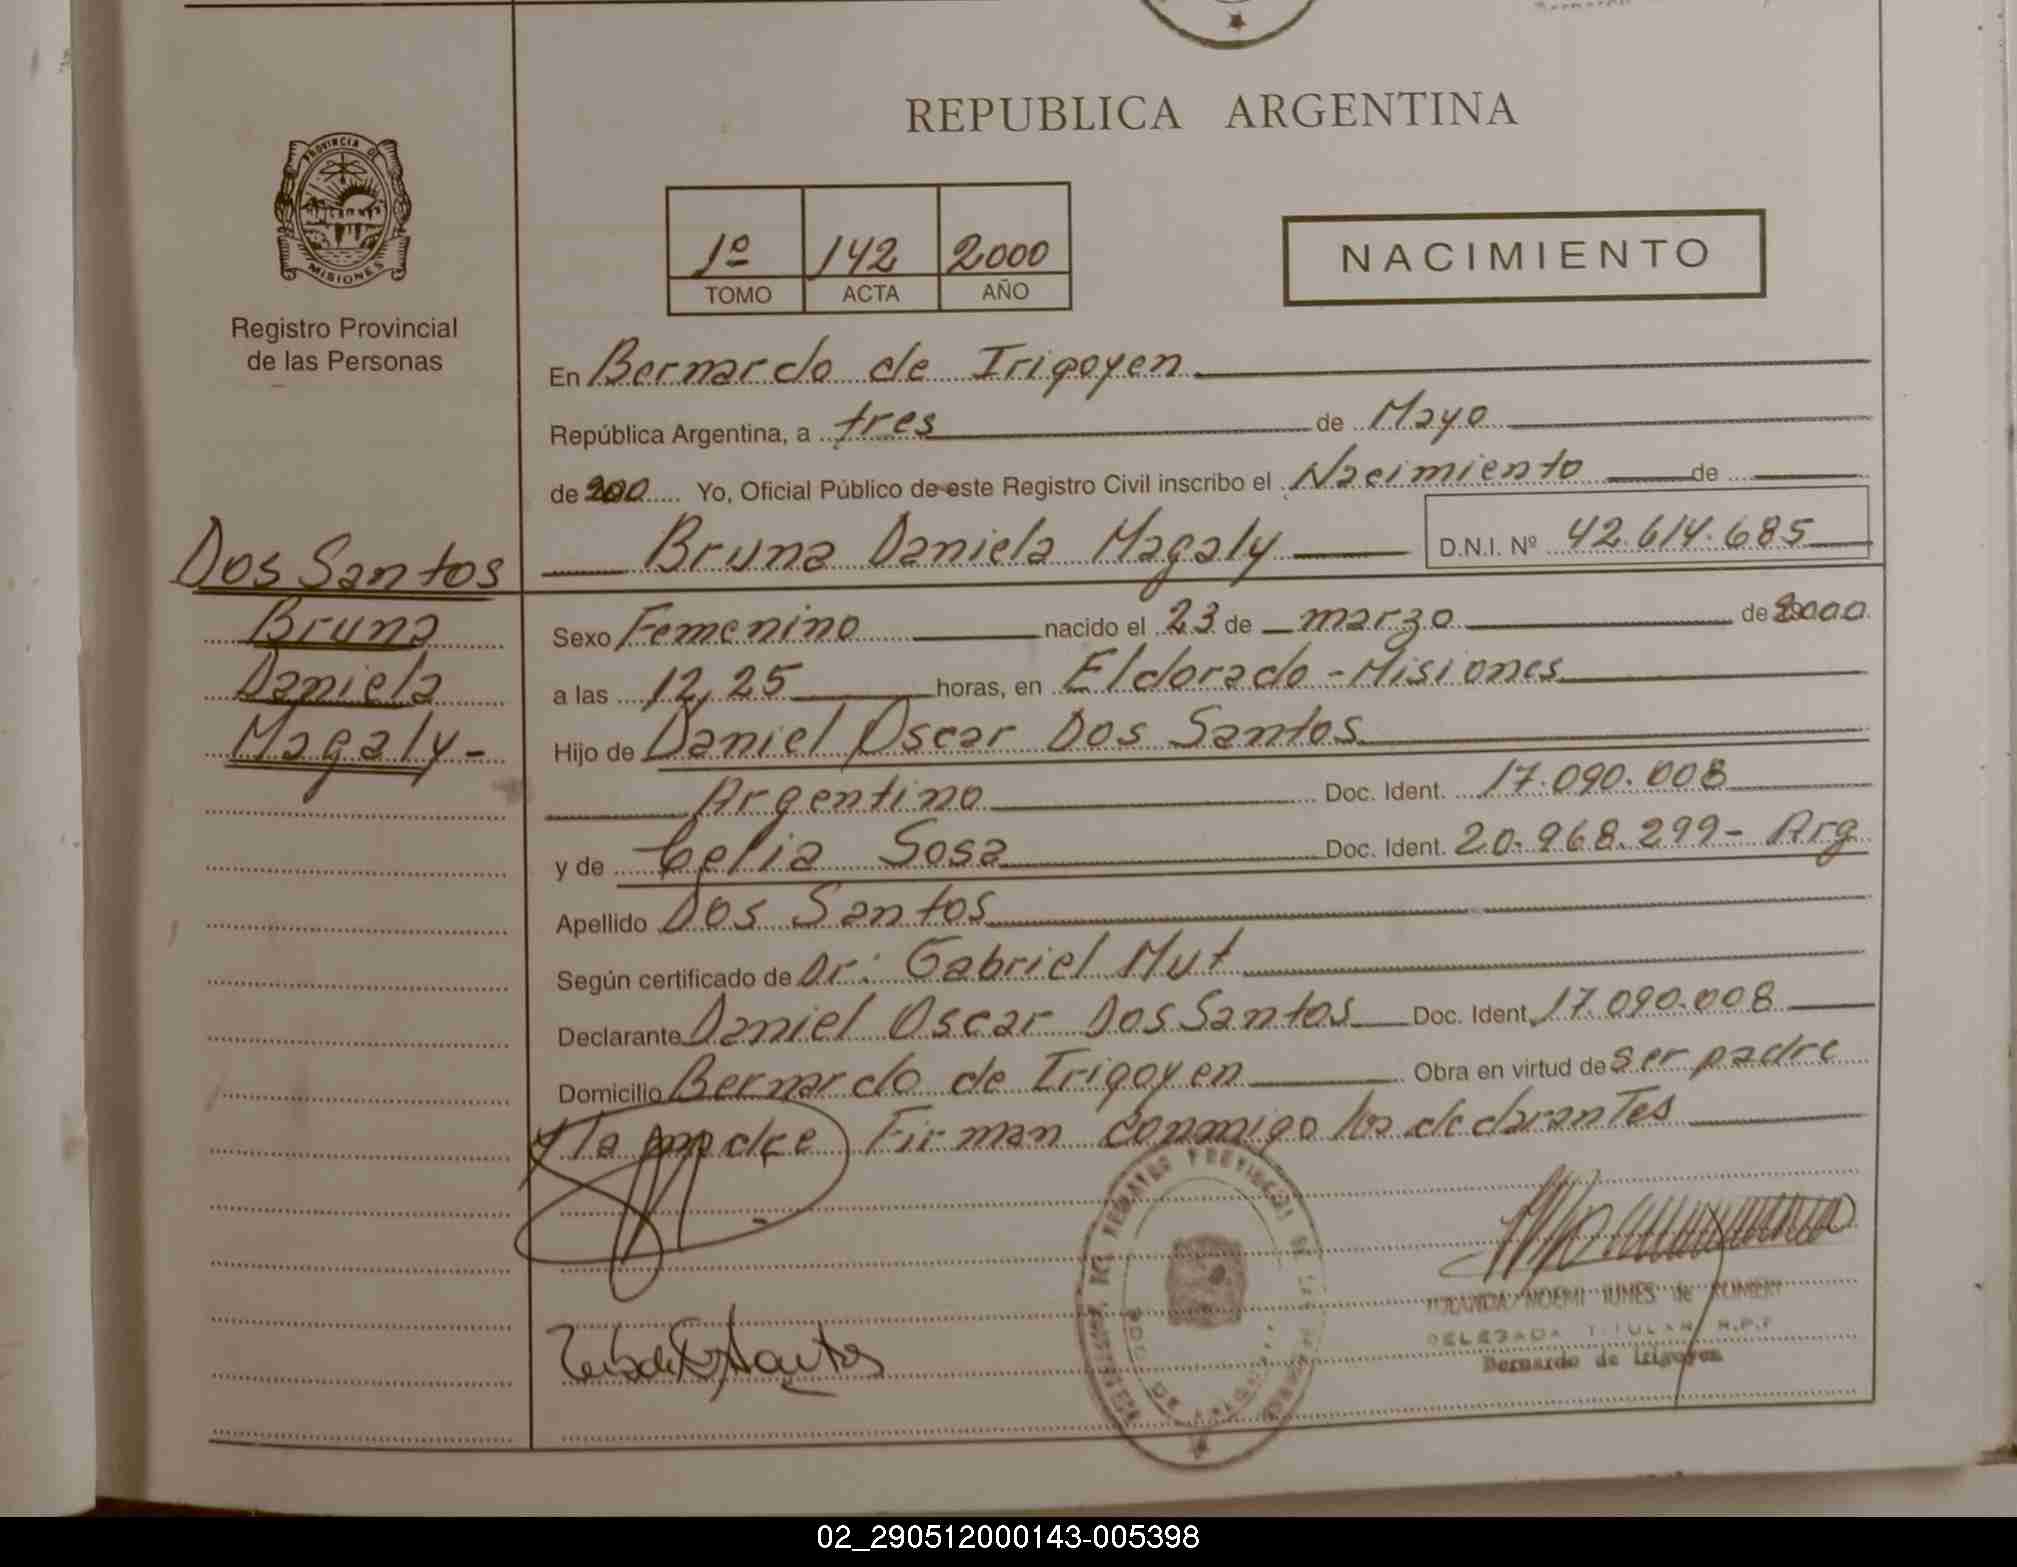 REPUBLICA ARGENTINA
PROVINCIA DE
MISIONES
Registro Provincial
de las Personas
1º 142 2000
TOMO ACTA AÑO
NACIMIENTO
En Bernardo de Irigoyen
República Argentina, a tres de Mayo
de 200 Yo, Oficial Público de este Registro Civil inscribo el Nacimiento de
Bruna Daniela Magaly D.N.I. Nº 42.614.685
Dos Santos
Bruna
Daniela
Magaly-
Sexo Femenino nacido el 23 de marzo de 2000
a las 12,25 horas, en Eldorado - Misiones
Hijo de Daniel Oscar Dos Santos
Argentino Doc. Ident. 17.090.008
y de Celia Sosa Doc. Ident. 20.968.299- Arg
Apellido Dos Santos
Según certificado de Dr: Gabriel Mut
Declarante Daniel Oscar Dos Santos Doc. Ident. 17.090.008
Domicilio Bernardo de Irigoyen Obra en virtud de ser padre
y la madre Firman conmigo los declarantes
NOEMI de
DELEGADA TITULAR R.P.P
Bernardo de Irigoyen
02_290512000143-005398